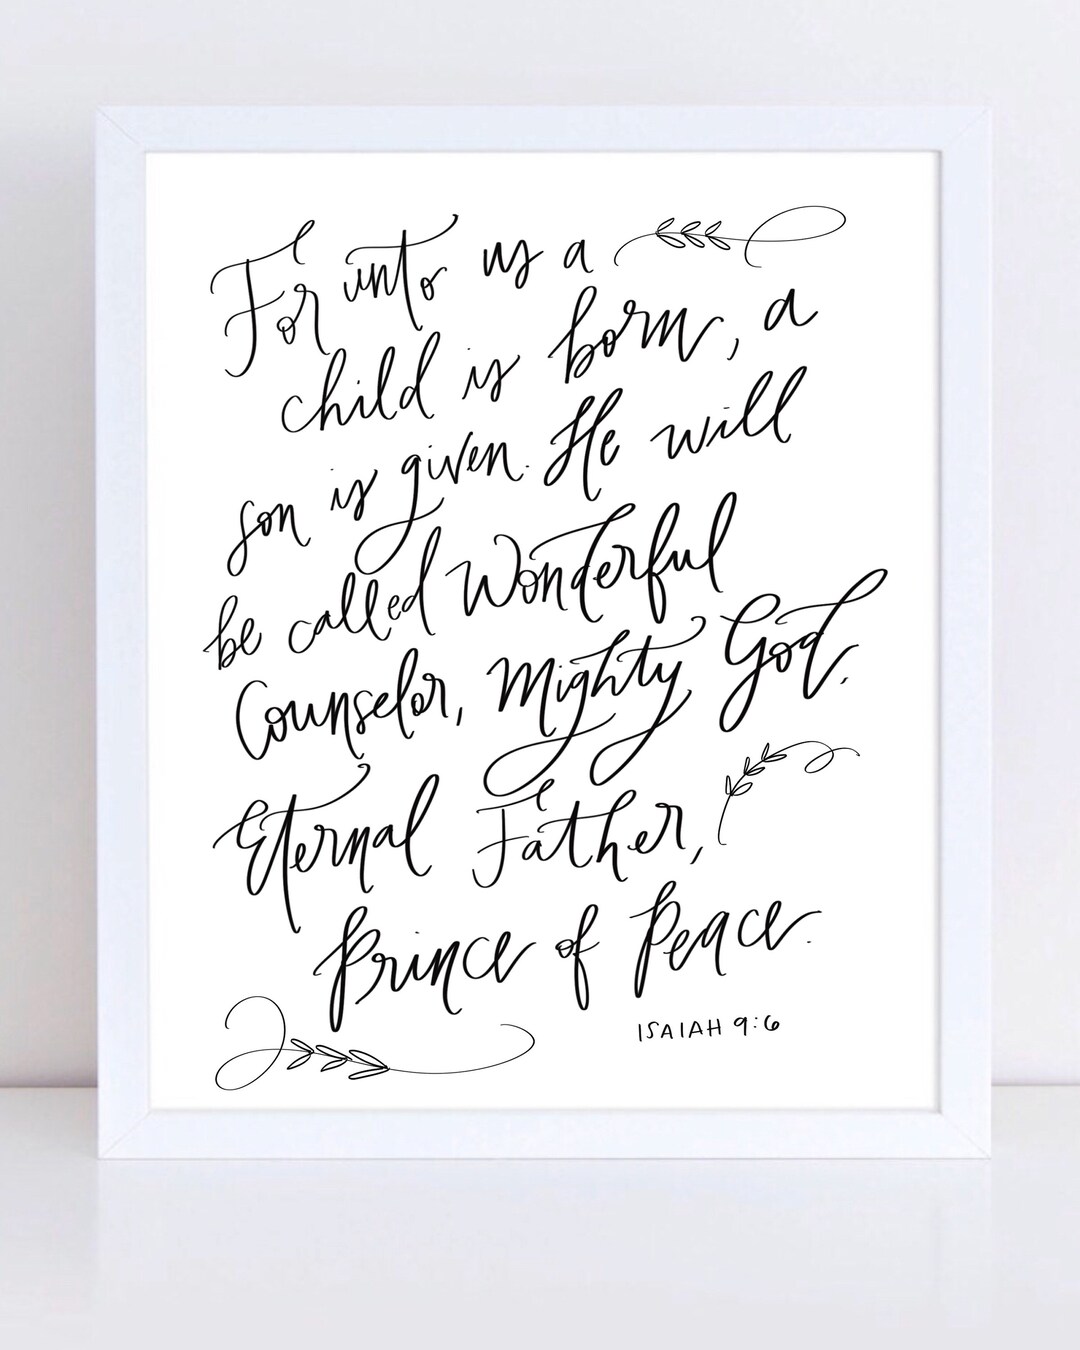 For unto us a
child is born, a
son is given. He will
be called Wonderful
Counselor, Mighty God,
Eternal Father,
Prince of Peace.
ISAIAH 9:6